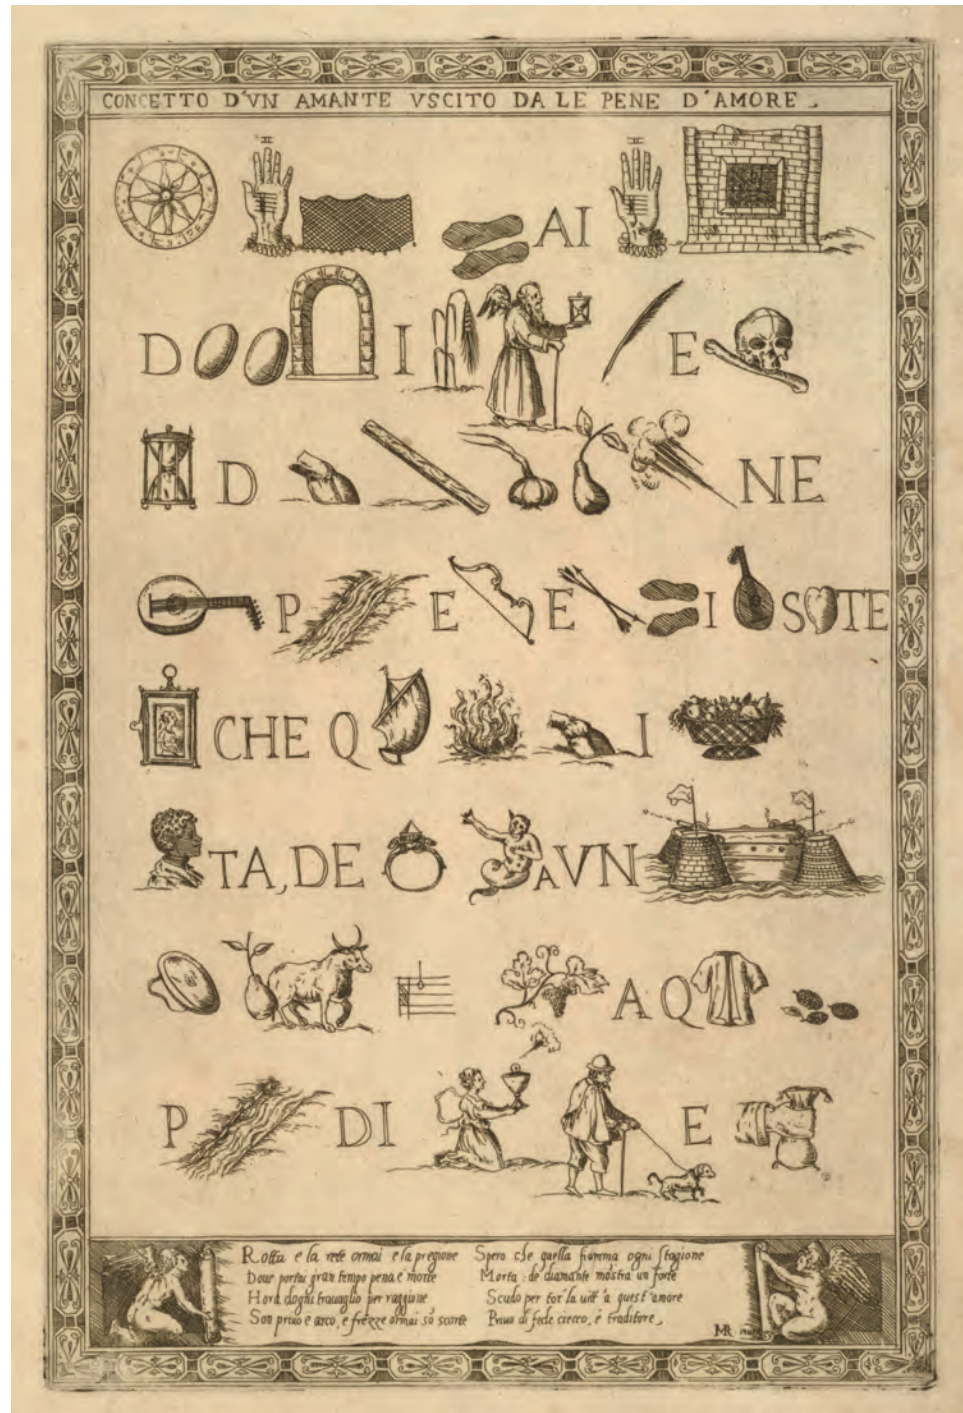 CONCETTO D'VN AMANTE VSCITO DA LE PENE D'AMORE
II AI II
D I E
D NE
P E E I S TE
CHE Q I
TA, DE A VN
A Q
P DI E
Rotta e la rete ormai e la pregione
Doue portai gran tempo pena e morte
Hora d'ogni trauaglio per raggione
Son priuo e arco, e frezze ormai so scorte
Spero che quella fiamma ogni stagione
Morta, de diamante mostra un forte
Scudo per tor la uitt'a quest'amore
Priuo di fede ciecco, e traditore
MR